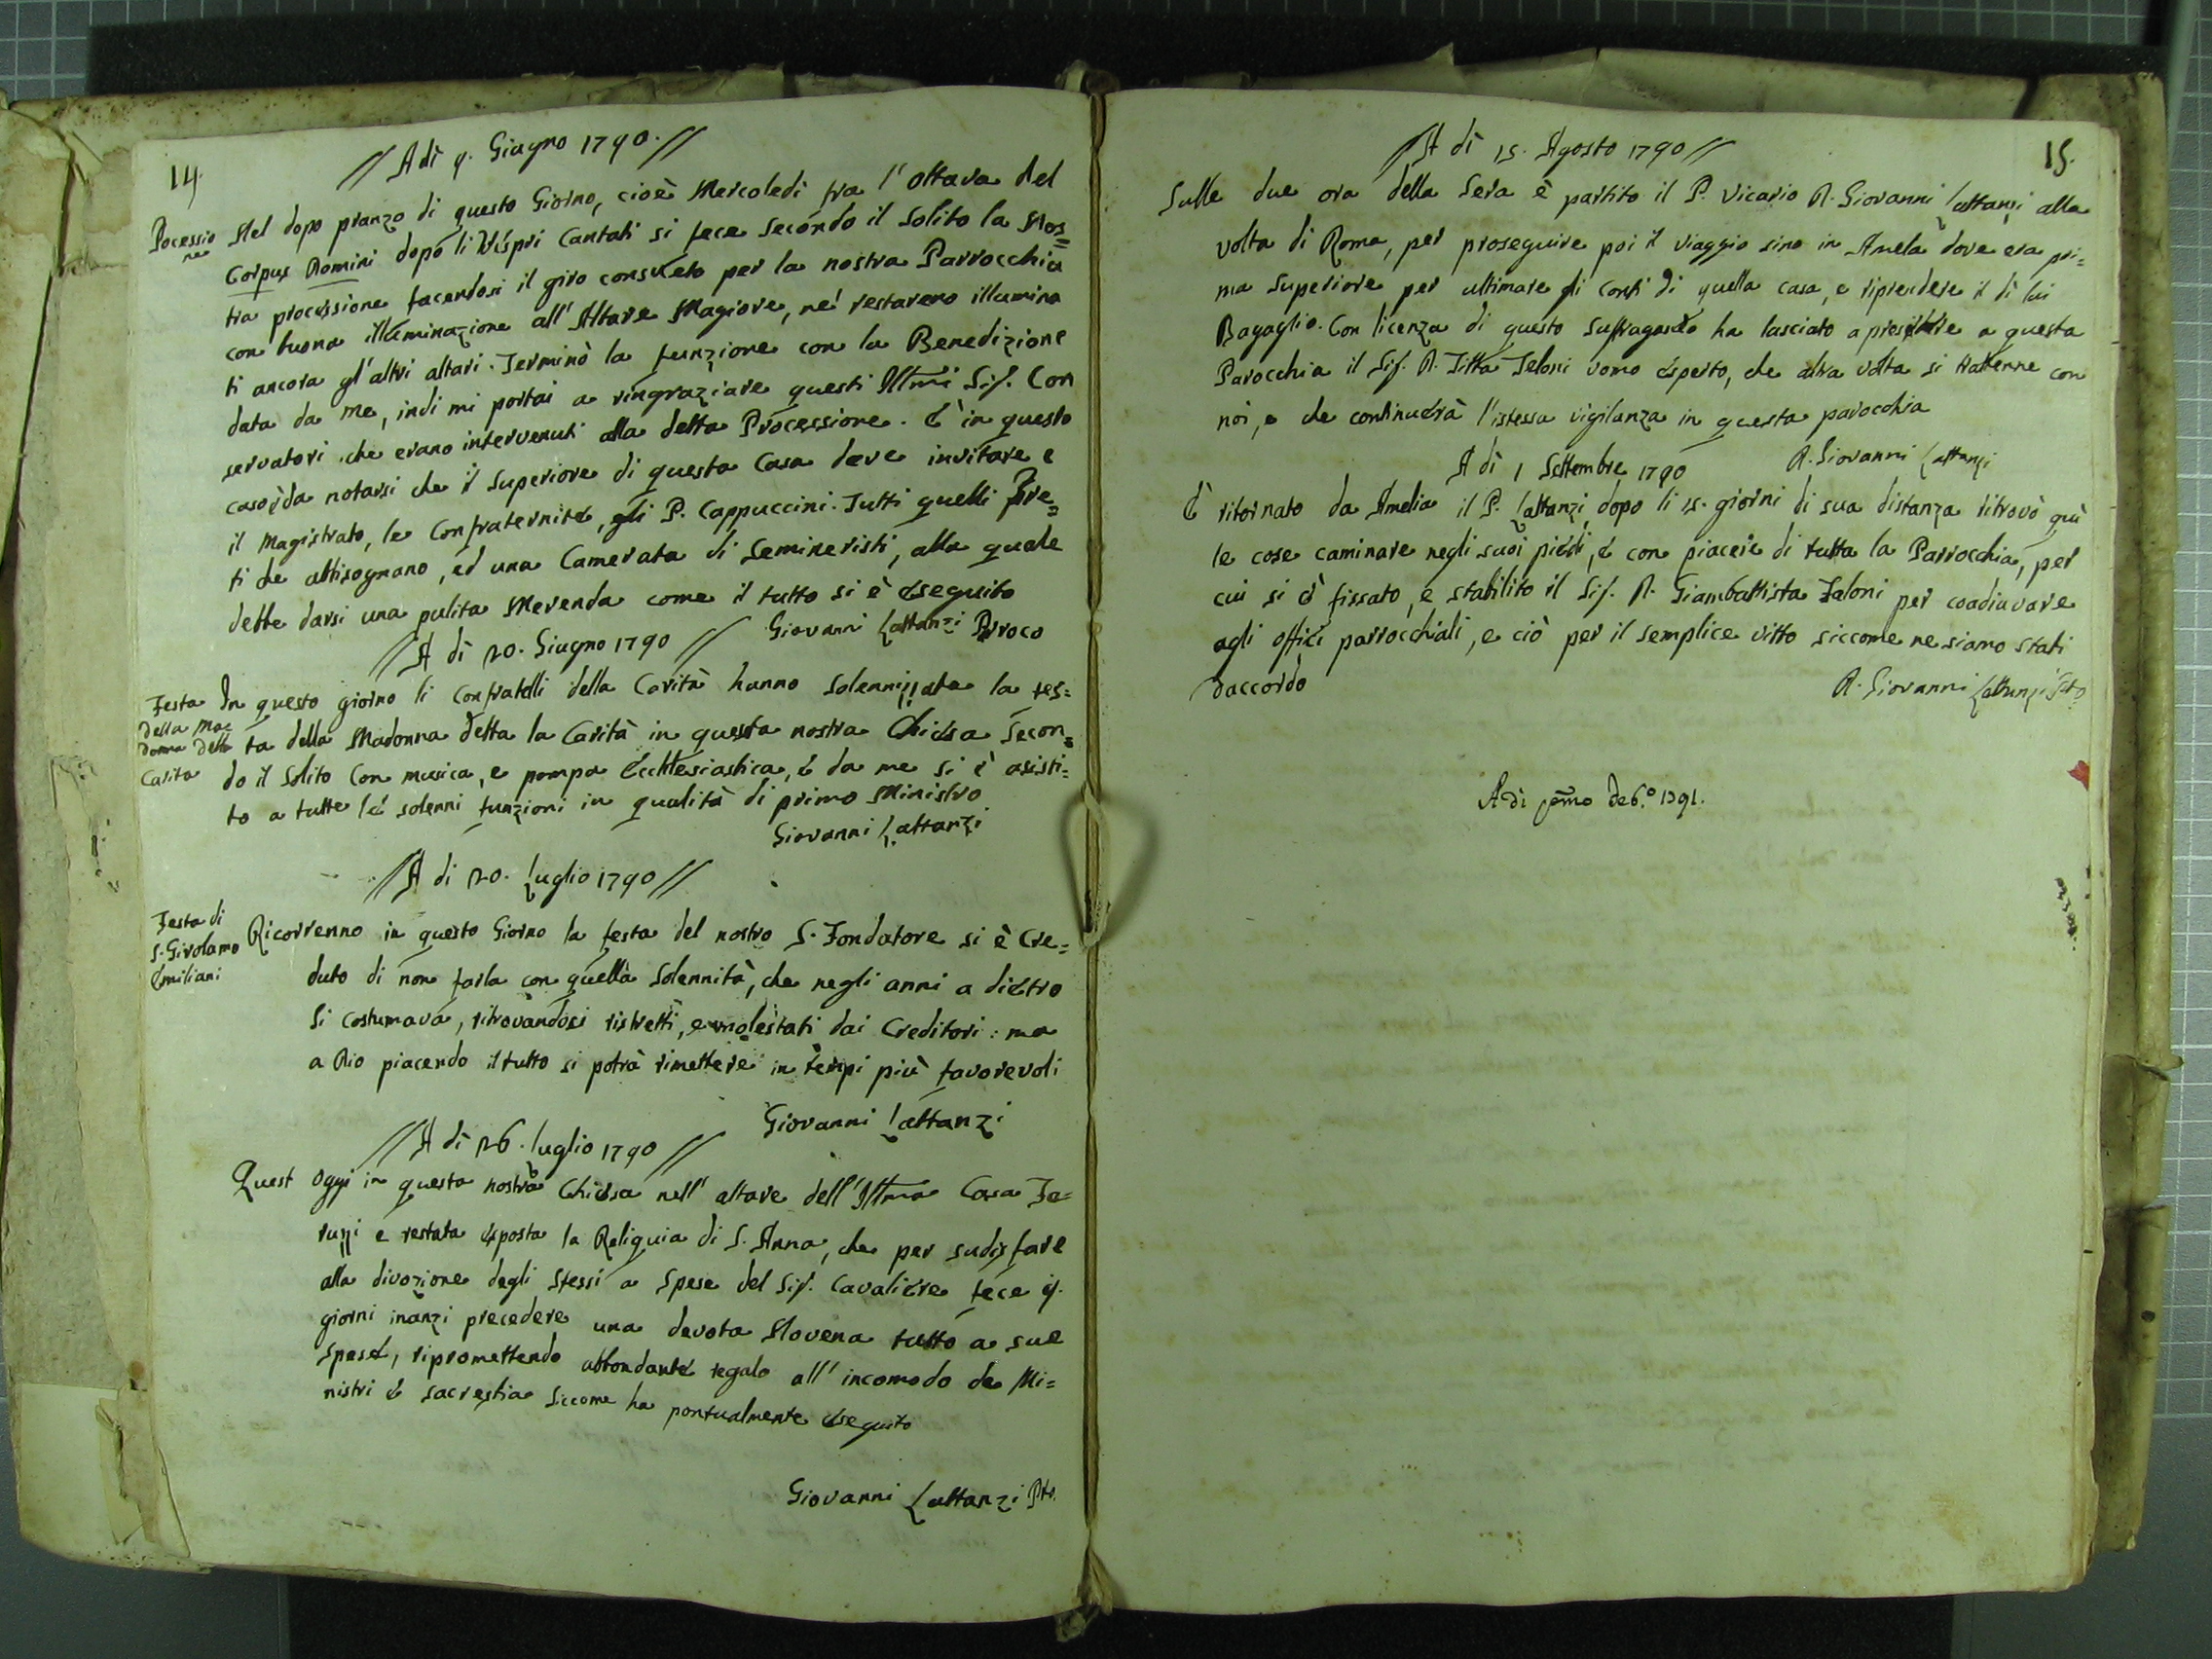 14.
// A dì 9. Giugno 1790. //
Pocessio
ne
Nel dopo pranzo di questo Giorno, cioè Mercoledì fra l'ottava del
Corpus Domini dopo li Vespri Cantati si fece secondo il solito la Nos=
tra processione facendosi il giro consueto per la nostra Parrocchia
con buona illuminazione all'Altare Magiore, nè restarono illumina
ti ancora gl'altri altari. Terminò la funzione con la Benedizione
data da me, indi mi portai a ringraziare questi Illmi Sig. Con
servatori che erano intervenuti alla detta Processione. È in questo
caso da notarsi che il Superiore di questa Casa deve invitare e
il Magistrato, le Confraternite, gli P. Cappuccini. Tutti quelli Pre=
ti che abbisognano, ed una Camerata di Semineristi, alla quale
debbe darsi una pulita Merenda come il tutto si è eseguito
Giovanni Lattanzi Parroco
// A dì 20. Giugno 1790 //
Festa
della Ma
donna della
Carita
In questo giorno li Confratelli della Carità hanno solennizzata la fes=
ta della Madonna detta la Carità in questa nostra Chiesa secon=
do il solito Con musica, e pompa Ecclesiastica, e da me si è asisti=
to a tutte le solenni funzioni in qualità di primo Ministro
Giovanni Lattanzi
// A di 20. Luglio 1790 //
Festa di
S. Girolamo
Emiliani
Ricorrenno in questo Giorno la festa del nostro S. Fondatore si è Cre=
duto di non farla con quella Solennità, che negli anni a dietro
si costumava, ritrovandosi ristretti, e molestati dai Creditori: ma
a Dio piacendo il tutto si potrà rimettere in tempi più favorevoli
Giovanni Lattanzi
// A dì 26. Luglio 1790 //
Quest oggi in questa nostra Chiesa nell'altare dell'Illma Casa Fa=
ruzzi e restata esposta la Reliquia di S. Anna, che per sudisfare
alla divozione degli stessi a spese del Sig. Cavaliere fece 9.
giorni inanzi precedere una devota Novena tutto a sue
spese, ripromettendo abbondante regalo all'incomodo de Mi=
nistri e sacrestia siccome ha pontualmente eseguito
Giovanni Lattanzi Pto.
15.
// A dì 15. Agosto 1790 //
Sulle due ora della sera è partito il P. Vicario D. Giovanni Lattanzi alla
volta di Roma, per proseguire poi il viaggio sino in Amela dove era pri=
ma Superiore per ultimare gli Conti di quella casa, e riprendere il di lui
Bagaglio. Con licenza di questo Suffraganeo ha lasciato a presiedere a questa
Parocchia il Sig. D. Titta Teloni uomo esperto, che altra volta si trattenne con
noi, e che continuerà l'istessa vigilanza in questa parocchia
D. Giovanni Lattanzi
A dì 1 Settembre 1790
È ritornato da Amelia il P. Lattanzi dopo li 15. giorni di sua distanza ritrovò quì
le cose caminare negli suoi piedi, e con piacere di tutta la Parrocchia, per
cui si è fissato, e stabilito il Sig. D. Giambattista Taloni per coadiuvare
agli offizi parrocchiali, e ciò per il semplice vitto siccome ne siamo stati
daccordo
D. Giovanni Lattanzi
A dì pmo Xbe 1791.